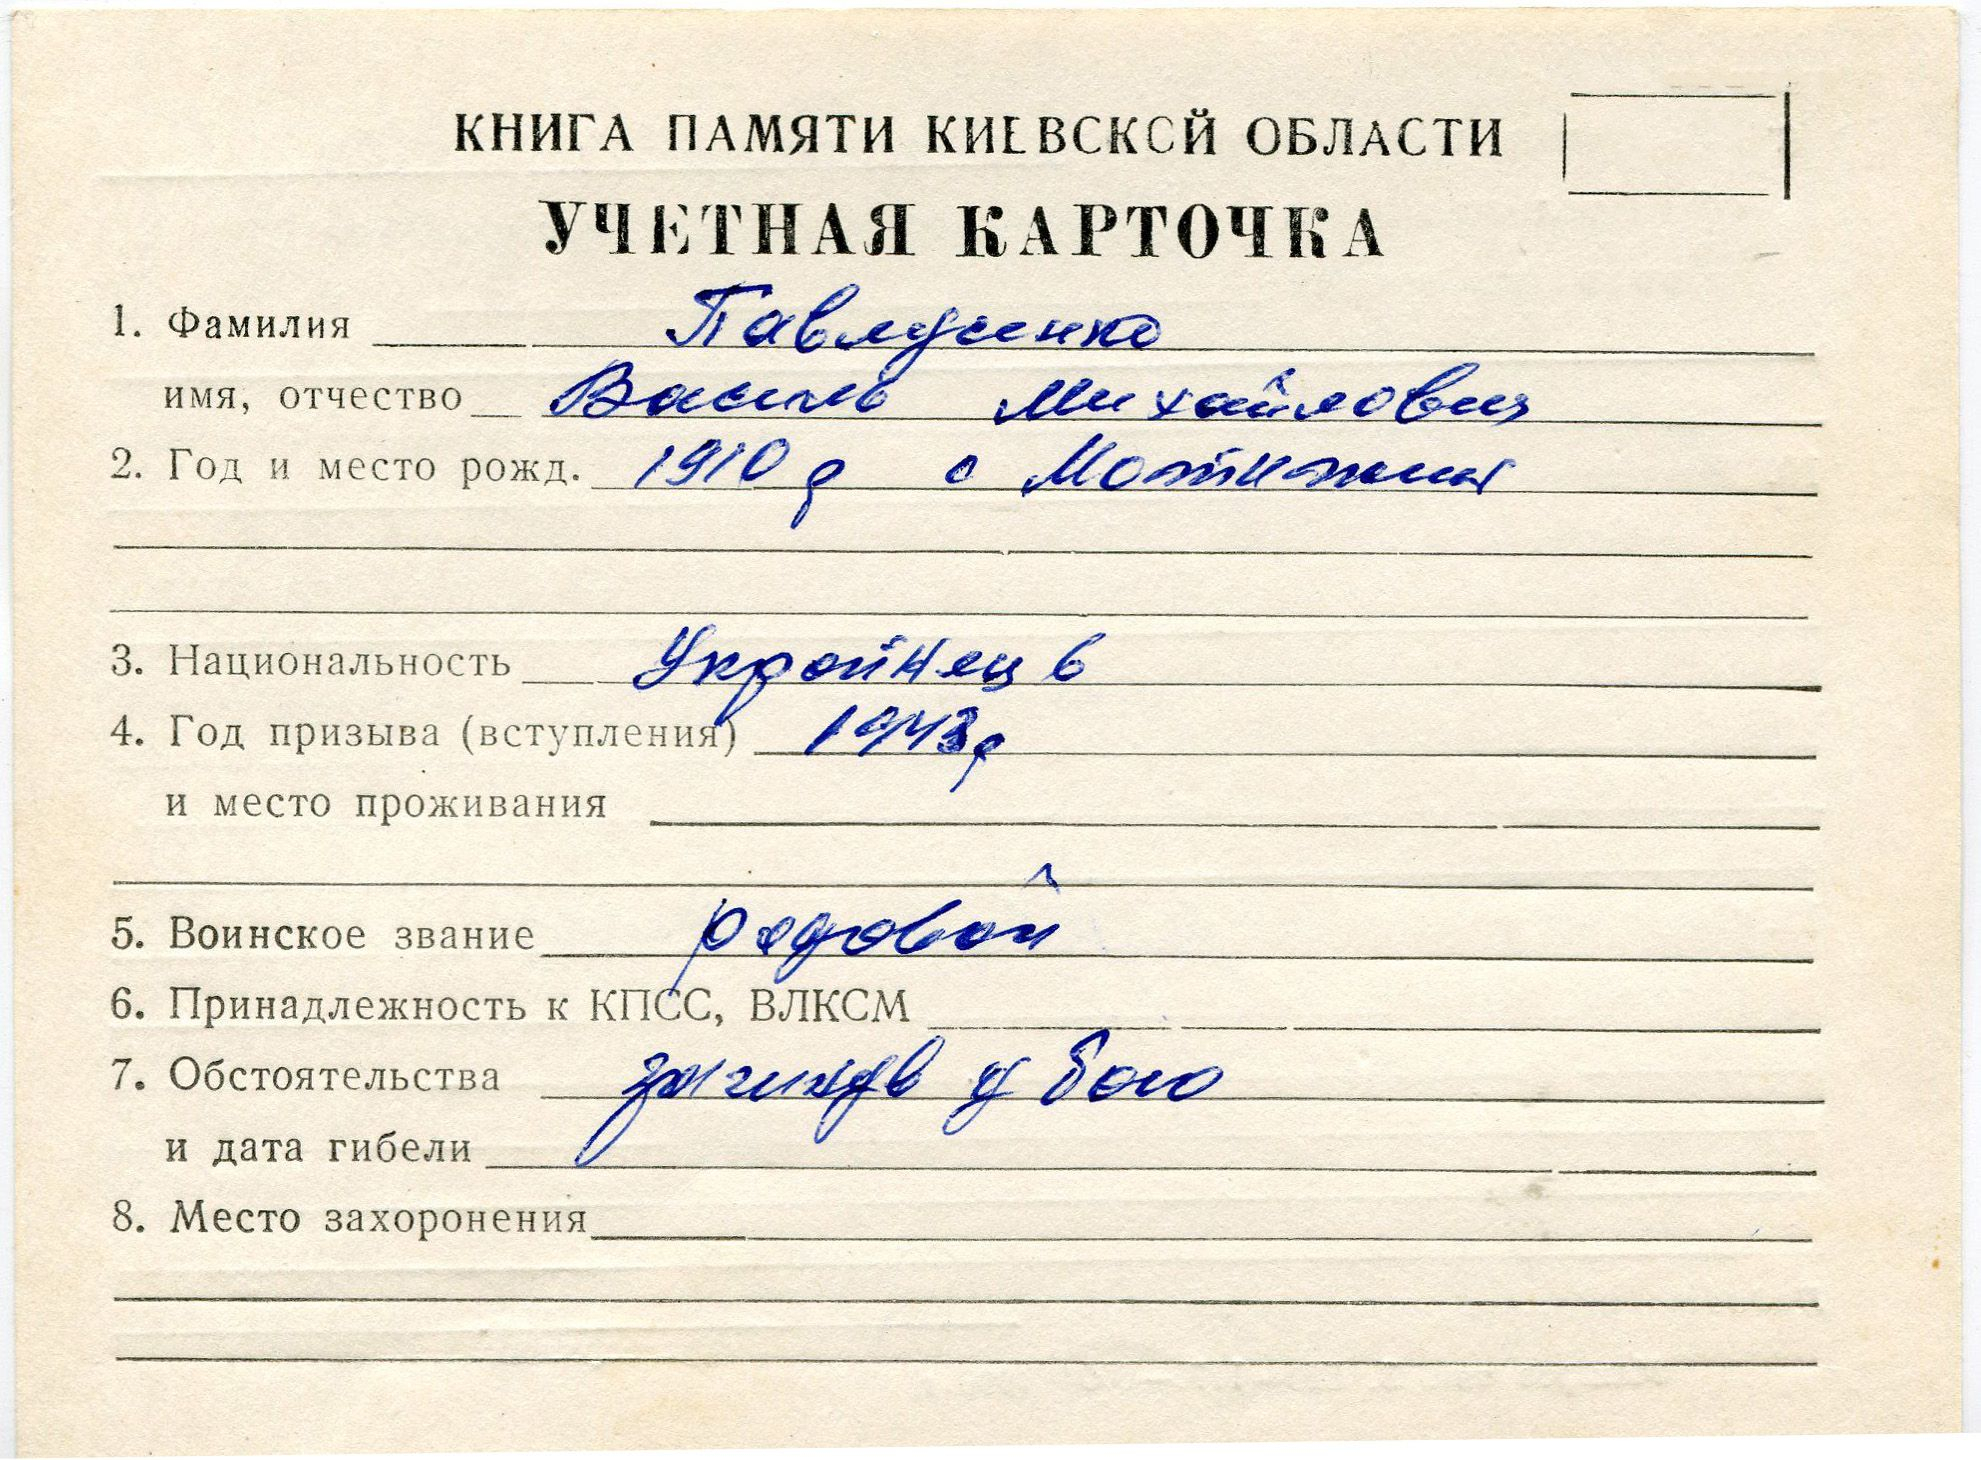 КНИГА ПАМЯТИ КИЕВСКОЙ ОБЛАСТИ
УЧЕТНАЯ КАРТОЧКА
1. Фамилия Павлусенко
имя, отчество Василь Михайлович
2. Год и место рожд. 1910 р с Мотижин
3. Национальность Украйнець
4. Год призыва (вступления) 1943р
и место проживания
5. Воинское звание рядовой
6. Принадлежность к КПСС, ВЛКСМ
7. Обстоятельства загинув у бою
и дата гибели
8. Место захоронения